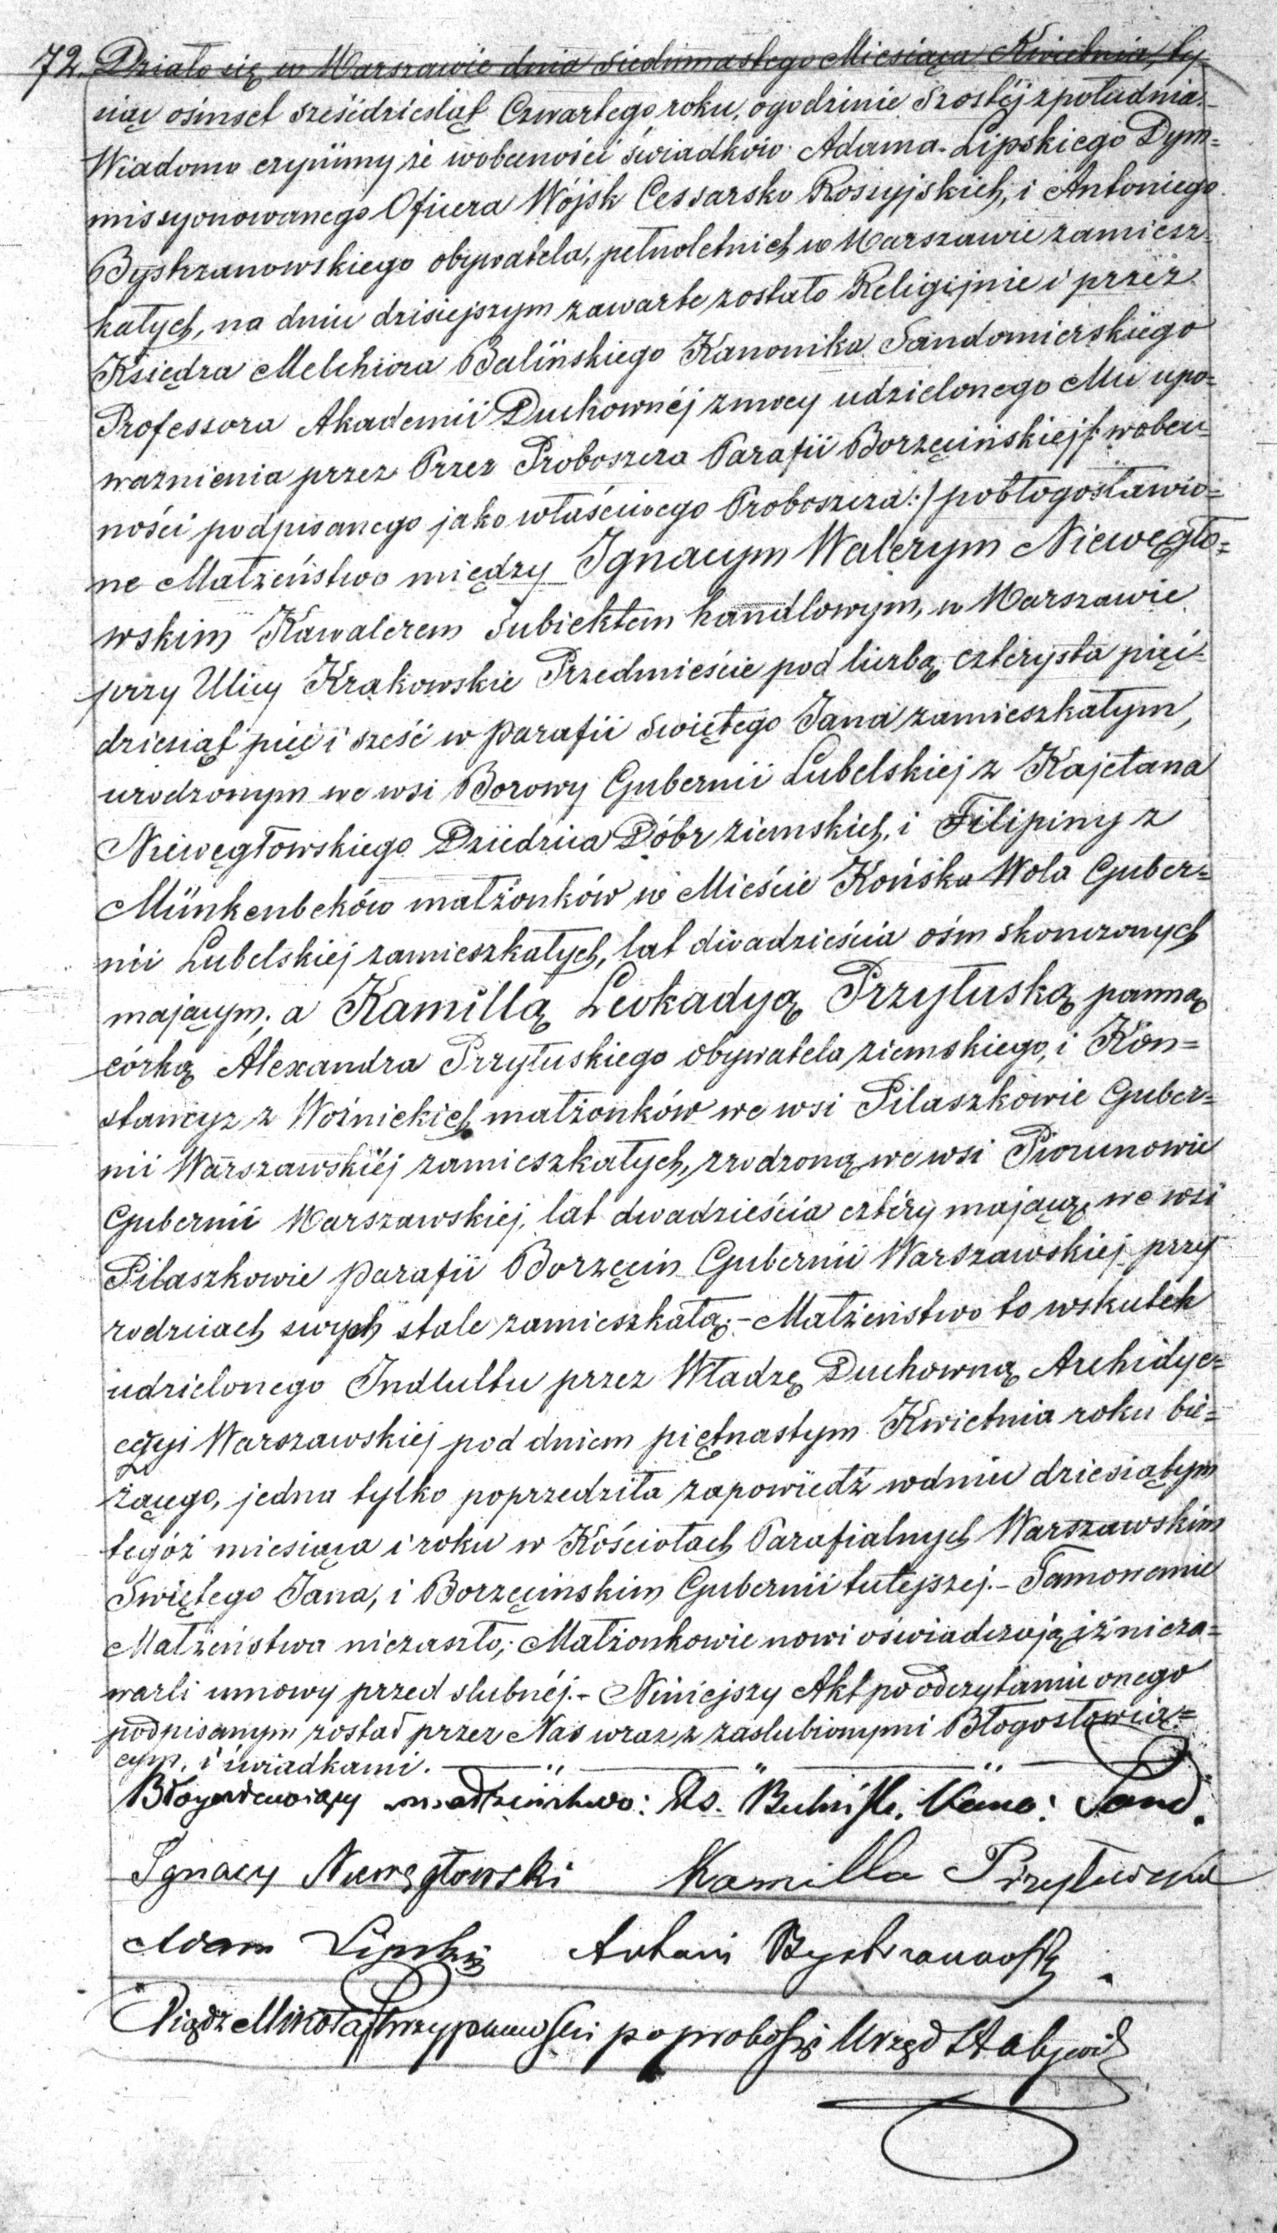 72. Działo się w Warszawie dnia siedmnastego Miesiąca Kwietnia, ty-
siąc ośmset sześćdziesiąt Czwartego roku, o godzinie szóstéj z południa.
Wiadomo czynimy że w obecności świadków Adama Lipskiego Dym=
missyonowanego Oficera Wojsk Cessarsko Rossyjskich, i Antoniego
Bystrzanowskiego obywatela, pełnoletnich w Warszawie zamiesz-
kałych, na dniu dzisiejszym zawarte zostało Religijnie i przez
Księdza Melchiora Bulińskiego Kanonika Sandomierskiego
Professora Akademii Duchownéj z mocy udzielonego Mu upo=
ważnienia przez Przez Proboszcza Parafii Borzęcińskiej /: w obec-
ności podpisanego jako właściwego Proboszcza :/ pobłogosławio=
ne Małżeństwo między Ignacym Walerym Niewęgło=
wskim Kawalerem Subiektem handlowym, w Warszawie
przy Ulicy Krakowskie Przedmieście pod liczbą czterysta pięć-
dziesiąt pięć i sześć w parafii Świętego Jana zamieszkałym,
urodzonym we wsi Borowy Gubernii Lubelskiej z Kajetana
Niewęgłowskiego Dziedzica Dóbr ziemskich, i Filipiny z
Münkenbeków małżonków w Mieście Końska Wola Guber=
nii Lubelskiej zamieszkałych, lat dwadzieścia ośm skończonych
mającym; a Kamillą Leokadyą Przyłuską panną
córką Alexandra Przyłuskiego obywatela ziemskiego, i Kon=
stancyz z Woźnickich małżonków we wsi Pilaszkowie Guber=
nii Warszawskiéj zamieszkałych, zrodzoną we wsi Piorunowie
Gubernii Warszawskiej, lat dwadzieścia cztéry mającą, we wsi
Pilaszkowie parafii Borzęcin Gubernii Warszawskiej przy
rodzicach swych stale zamieszkałą; - Małżeństwo to wskutek
udzielonego Indultu przez Władzę Duchowną Archidye=
cezyi Warszawskiej pod dniem piętnastym Kwietnia roku bie=
żącego, jedna tylko poprzedziła zapowiedź w dniu dziesiątym
tegóż miesiąca i roku w Kościołach Parafialnych Warszawskim
Świętego Jana, i Borzęcińskim Gubernii tutejszej. - Tamowanie
Małżeństwa niezaszło; Małżonkowie nowi oświadczają iż nieza=
warli umowy przed ślubnéj. - Niniejszy Akt po odczytaniu onego
podpisanym został przez Nas wraz z zaslubionymi Błogosławią=
cym, i świadkami.
Błogosławiący małżeństwo: Ks. Buliński. Kano: Sand.
Ignacy Niewęgłowski Kamilla Przyłuska
Adam Lipski Antoni Bystrzanowski
Ksiądz Mikołaj